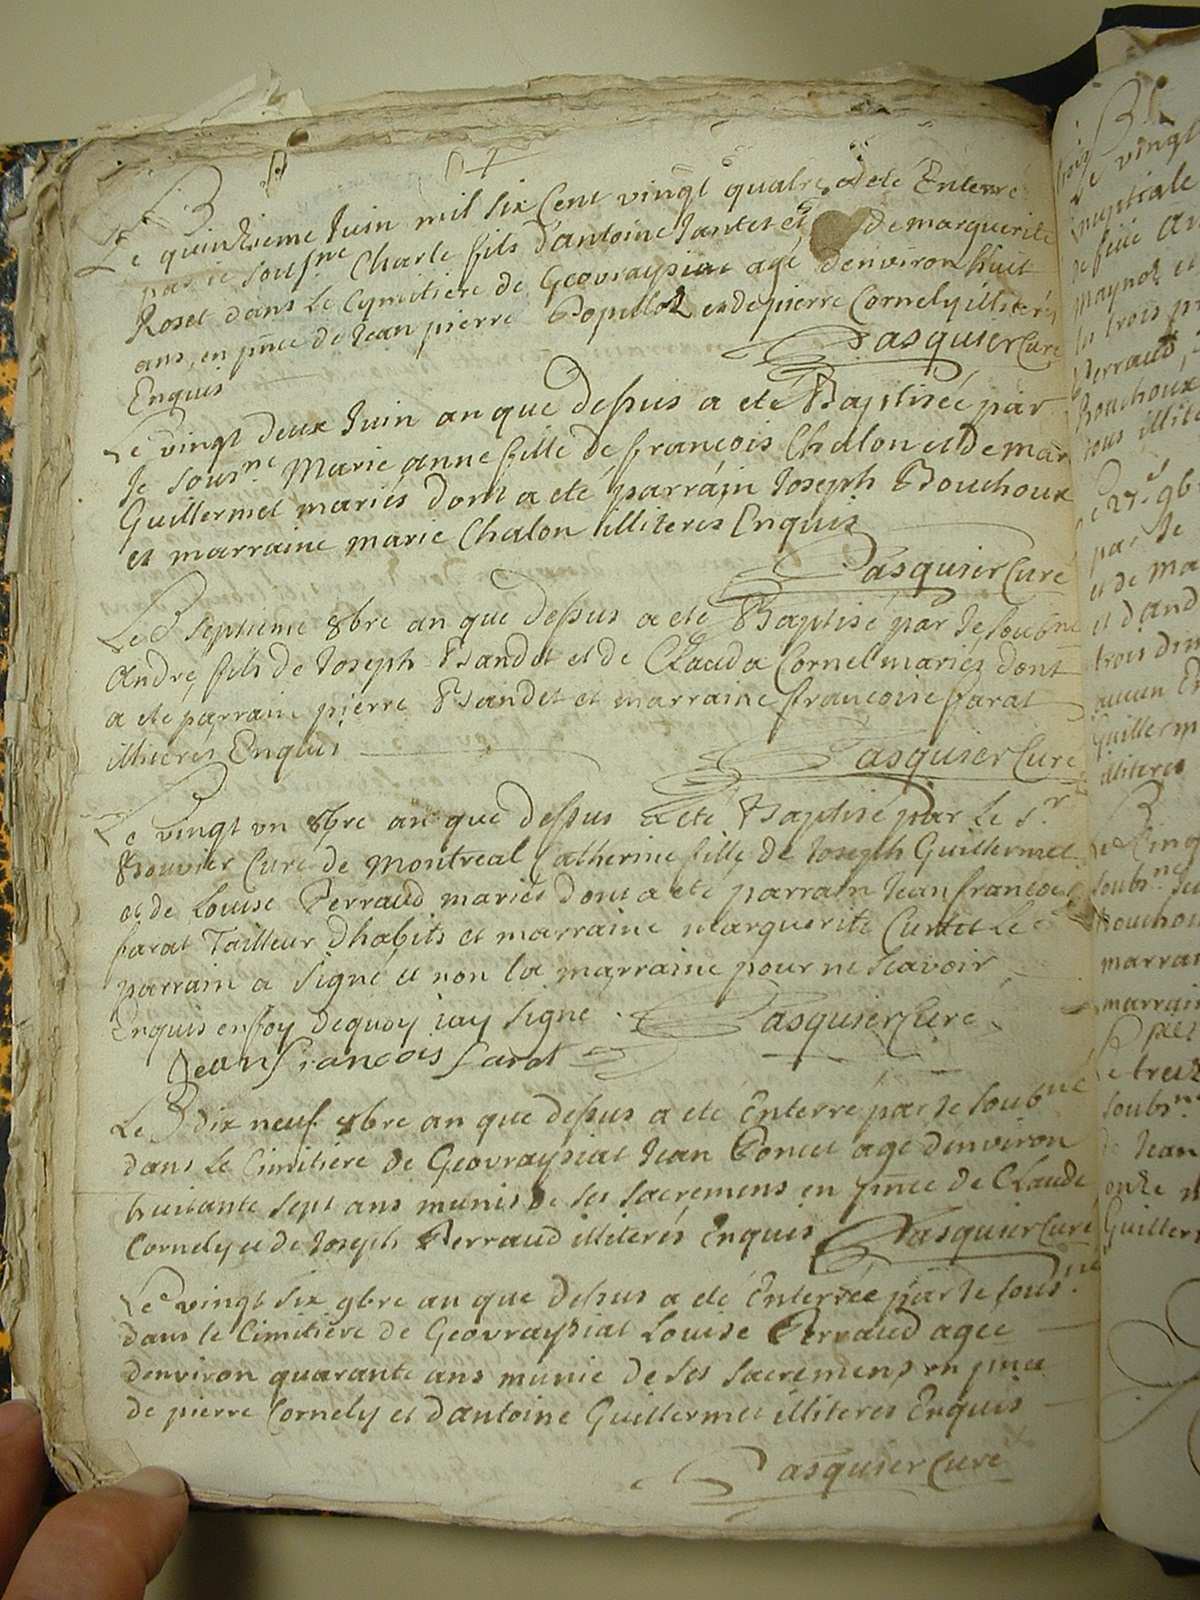 Le quinzieme Juin mil six Cent vingt quatre a été Enterré
par je sousne Charle fils d'antoine Jantet et de marguerite
Roset dans Le Cymitiere de Geovraysiat agé d'environ huit
ans, en pnce de Jean pierre Popillot et de pierre Cornely illiterés
Enquis
Pasquier Curé
Le vingt deux Juin an que dessus a eté Baptisée par
Je sousne Marie anne fille de françois Chalon et de mar
Guillermet mariés dont a eté parrain Joseph Bouchoux
et marraine marie Chalon illiterés Enquis
Pasquier Curé
Le septieme 8bre an que dessus a eté Baptisé par Je soubne
André, fils de Joseph et de Clauda Cornel mariez dont
a eté parrain pierre et marraine francoise farat
illiteres Enquis
Pasquier Curé
Le vingt un 8bre an que dessus a eté Baptisé par Le Sr
Bouvier Curé de Montreal Catherine fille de Joseph Guillermet
et de Louise Perraud mariés dont a eté parrain Jean francois
farat Tailleur dhabits et marraine marguerite Curtet Le
parrain a signé et non la marraine pour ne scavoir
Enquis en foy dequoy jay signé Pasquier Curé
Jean francois farat
Le dix neuf 8bre an que dessus a eté Enterré par Je soubne
dans Le Cimitiere de Geovraysiat Jean Poncet agé denviron
huitante sept ans munis de ses sacremens en pnce de Claude
Cornely et de Joseph Perraud illiterés Enquis Pasquier Curé
Le vingt six 9bre an que dessus a eté Enterrée par Je sousne
dans le Cimitiere de Geovraysiat Louise Perraud agée
denviron quarante ans munie de ses sacremens en pnce
de pierre Cornely et dantoine Guillermet illiteres Enquis
Pasquier Curé
Le vingt
nuptiale
Maynot et
la trois
Perraud
Bouchoux
tous
Le 27e 9b
par Je
et de ma
et dand
trois
aucun
Guillerm
illiteres
soubsne
Bouchou
marrai
marrain
Le trei
soubsne
de Jean
Guiller